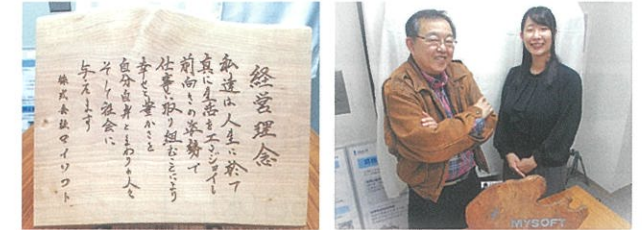 経営理念
私達は人生に於て
真に生活をエンジョイし
前向きの姿勢で
仕事に取り組むことにより
幸せと豊かさを
自分自身とまわりの人々
そして社会に
与えます
株式会社マイソフト
MYSOFT